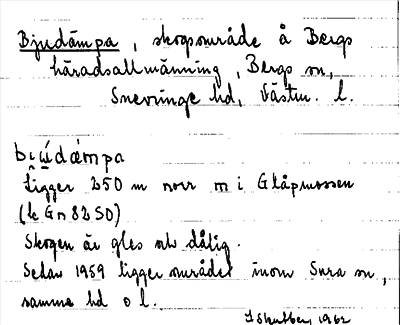 Bjudämpa, skogsområde å Bergs
häradsallmänning, Bergs sn,
Snevringe hd, Västm. l.
Ligger 250 m norr m i Glåpmossen
(le Gn 8250)
Skogen är gles och dålig.
Sedan 1959 ligger området inom Sura sn,
samma hd o l.
1962